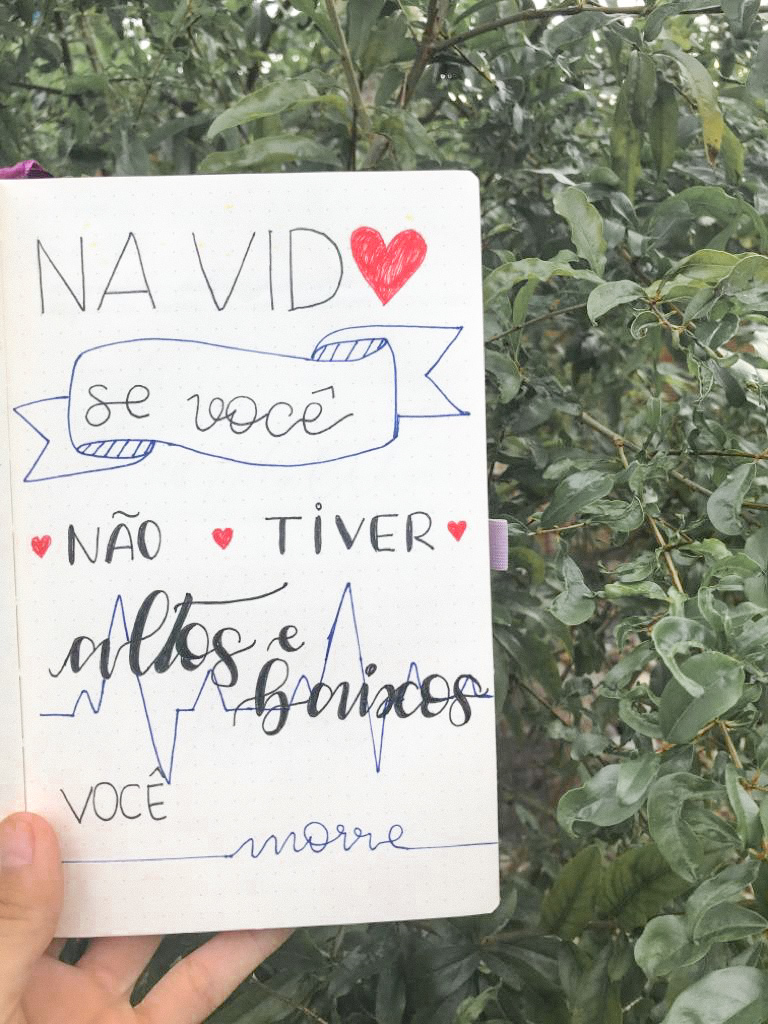 NA VID
se você
NÃO TIVER
altos e
baixos
VOCÊ
morre